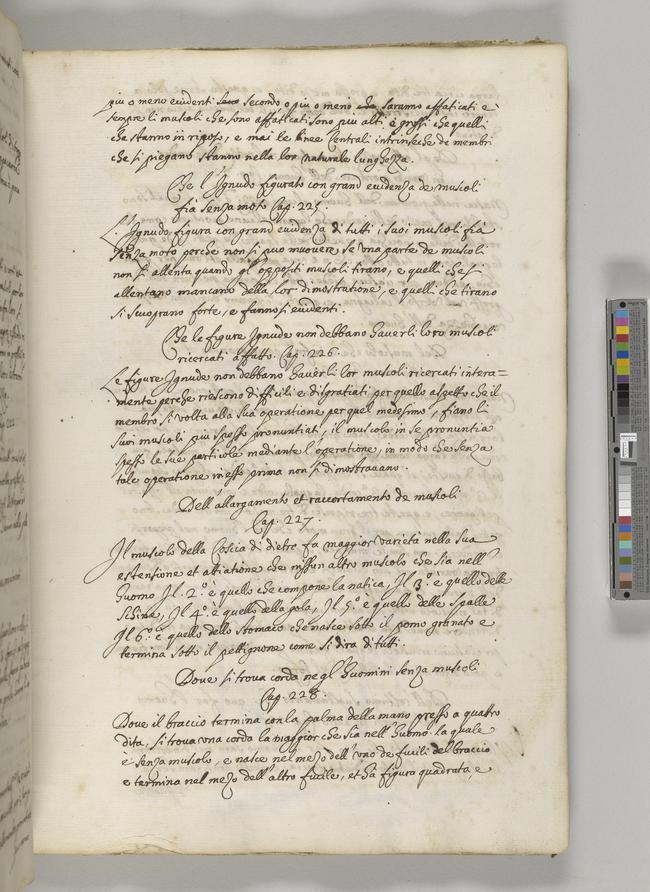 più o meno evidenti secondo o più o meno saranno affaticati e
sempre li muscoli che sono affatticati sono più alti e grossi che quelli
che stanno in riposo, e mai le linee Centrali intrinseche de membri
che si piegano stanno nella lor naturale lunghezza.
Che l'Ignudo figurato con grand evidenza de muscoli
fia senza moto Cap. 225.
L'Ignudo figura con grand evidenza di tutti i suoi muscoli fia
senza moto perche non si puo muovere se una parte de muscoli
non si allenta quando gl'oppositi muscoli tirano, e quelli che si
allentano mancano della lor dimostratione, e quelli che tirano
si scuoprano forte, e fannosi evidenti.
Che le figure Ignude non debbano haverli loro muscoli
ricercati affatto. Cap. 226.
Le figure Ignude non debbano haverli lor muscoli ricercati intera=
mente perche riescono difficili e disgratiati per quello aspetto che il
membro si volta alla sua operatione per quel medesimo, fiano li
suoi muscoli più spesso pronuntiati, il muscolo in se pronuntia
spesso le sue particole mediante l'operatione, in modo che senza
tale operatione in esso prima non si dimostravano.
Dell'allargamento et raccortamento de muscoli
Cap. 227.
Il muscolo della Coscia di dietro fa maggior varietà nella sua
estensione et attratione che nissun altro muscolo che sia nell'
huomo Il 2.º è quello che compone la natica, Il 3.º è quello delle
schine, Il 4.º è quello della gola, Il 5.º è quello delle spalle
Il 6.º è quello dello stomaco che nasce sotto il pomo granato e
termina sotto il pettignone come si dira di tutti.
Dove si trova corda negl'huomini senza muscoli
Cap. 228.
Dove il braccio termina con la palma della mano presso a quattro
dita, si trova una corda la maggior che sia nell'huomo la quale
è senza muscolo, e nasce nel mezo dell'uno de fucili del braccio
e termina nel mezo dell'altro fucile, et ha figura quadrata, e